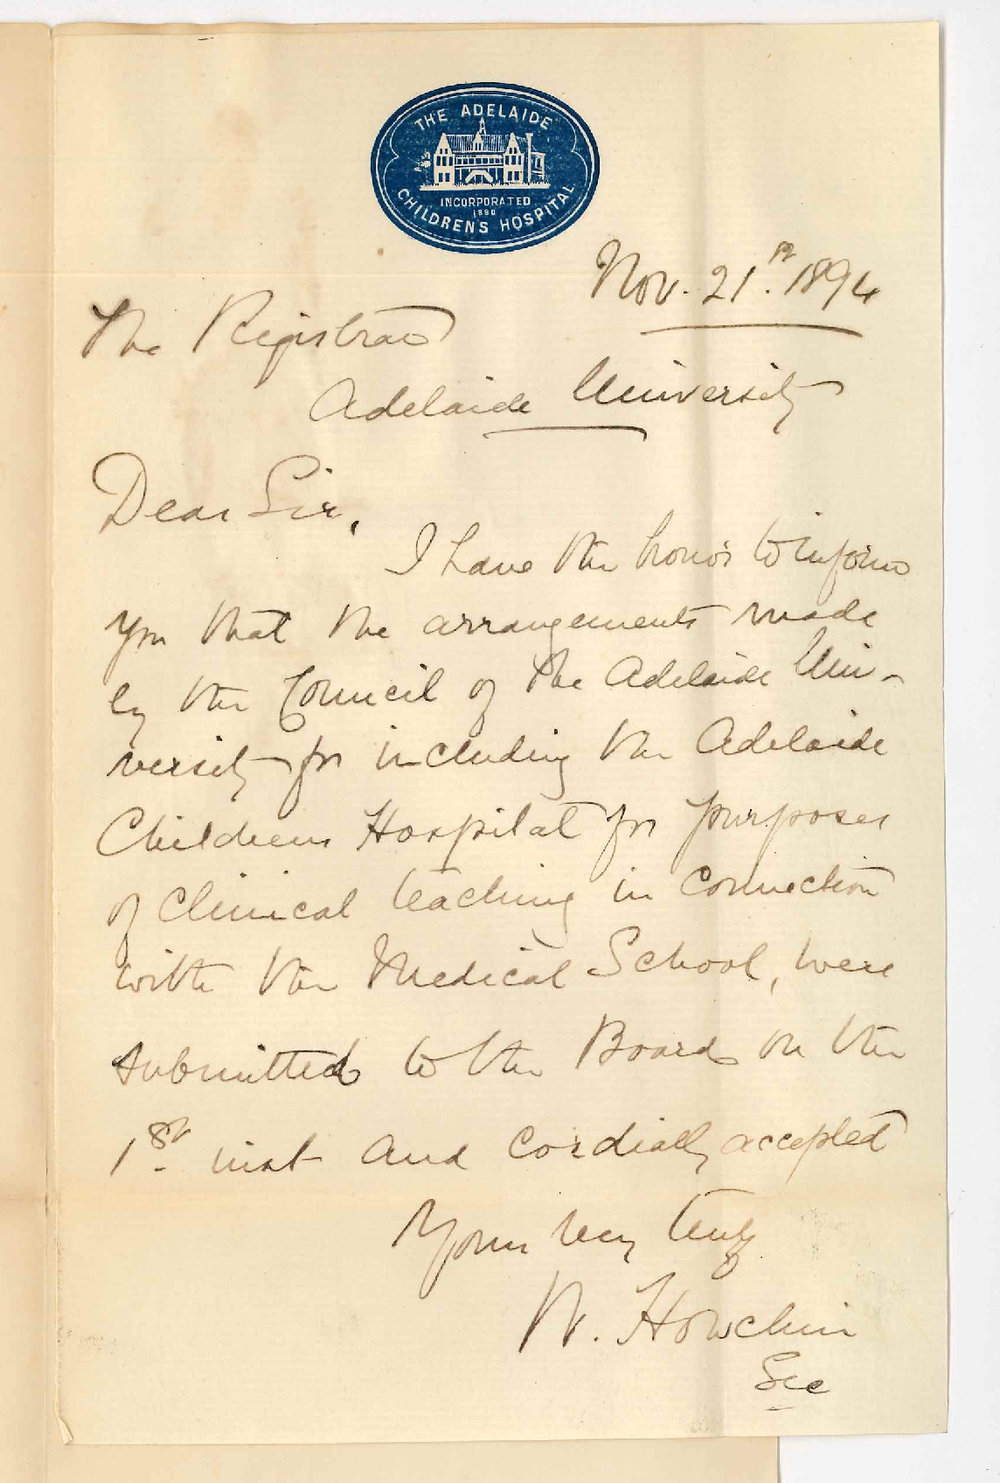 THE ADELAIDE
INCORPORATED
1880
CHILDRENS HOSPITAL
Nov. 21st. 1894
The Registrar
Adelaide University
Dear Sir,
I have the honor to inform
you that the arrangements made
by the Council of the Adelaide Uni-
versity for including the Adelaide
Childrens Hospital for purposes
of clinical teaching in connection
with the Medical School, were
submitted to the Board on the
1st. inst and cordially accepted
Yours very truly
W. Howchin
Sec